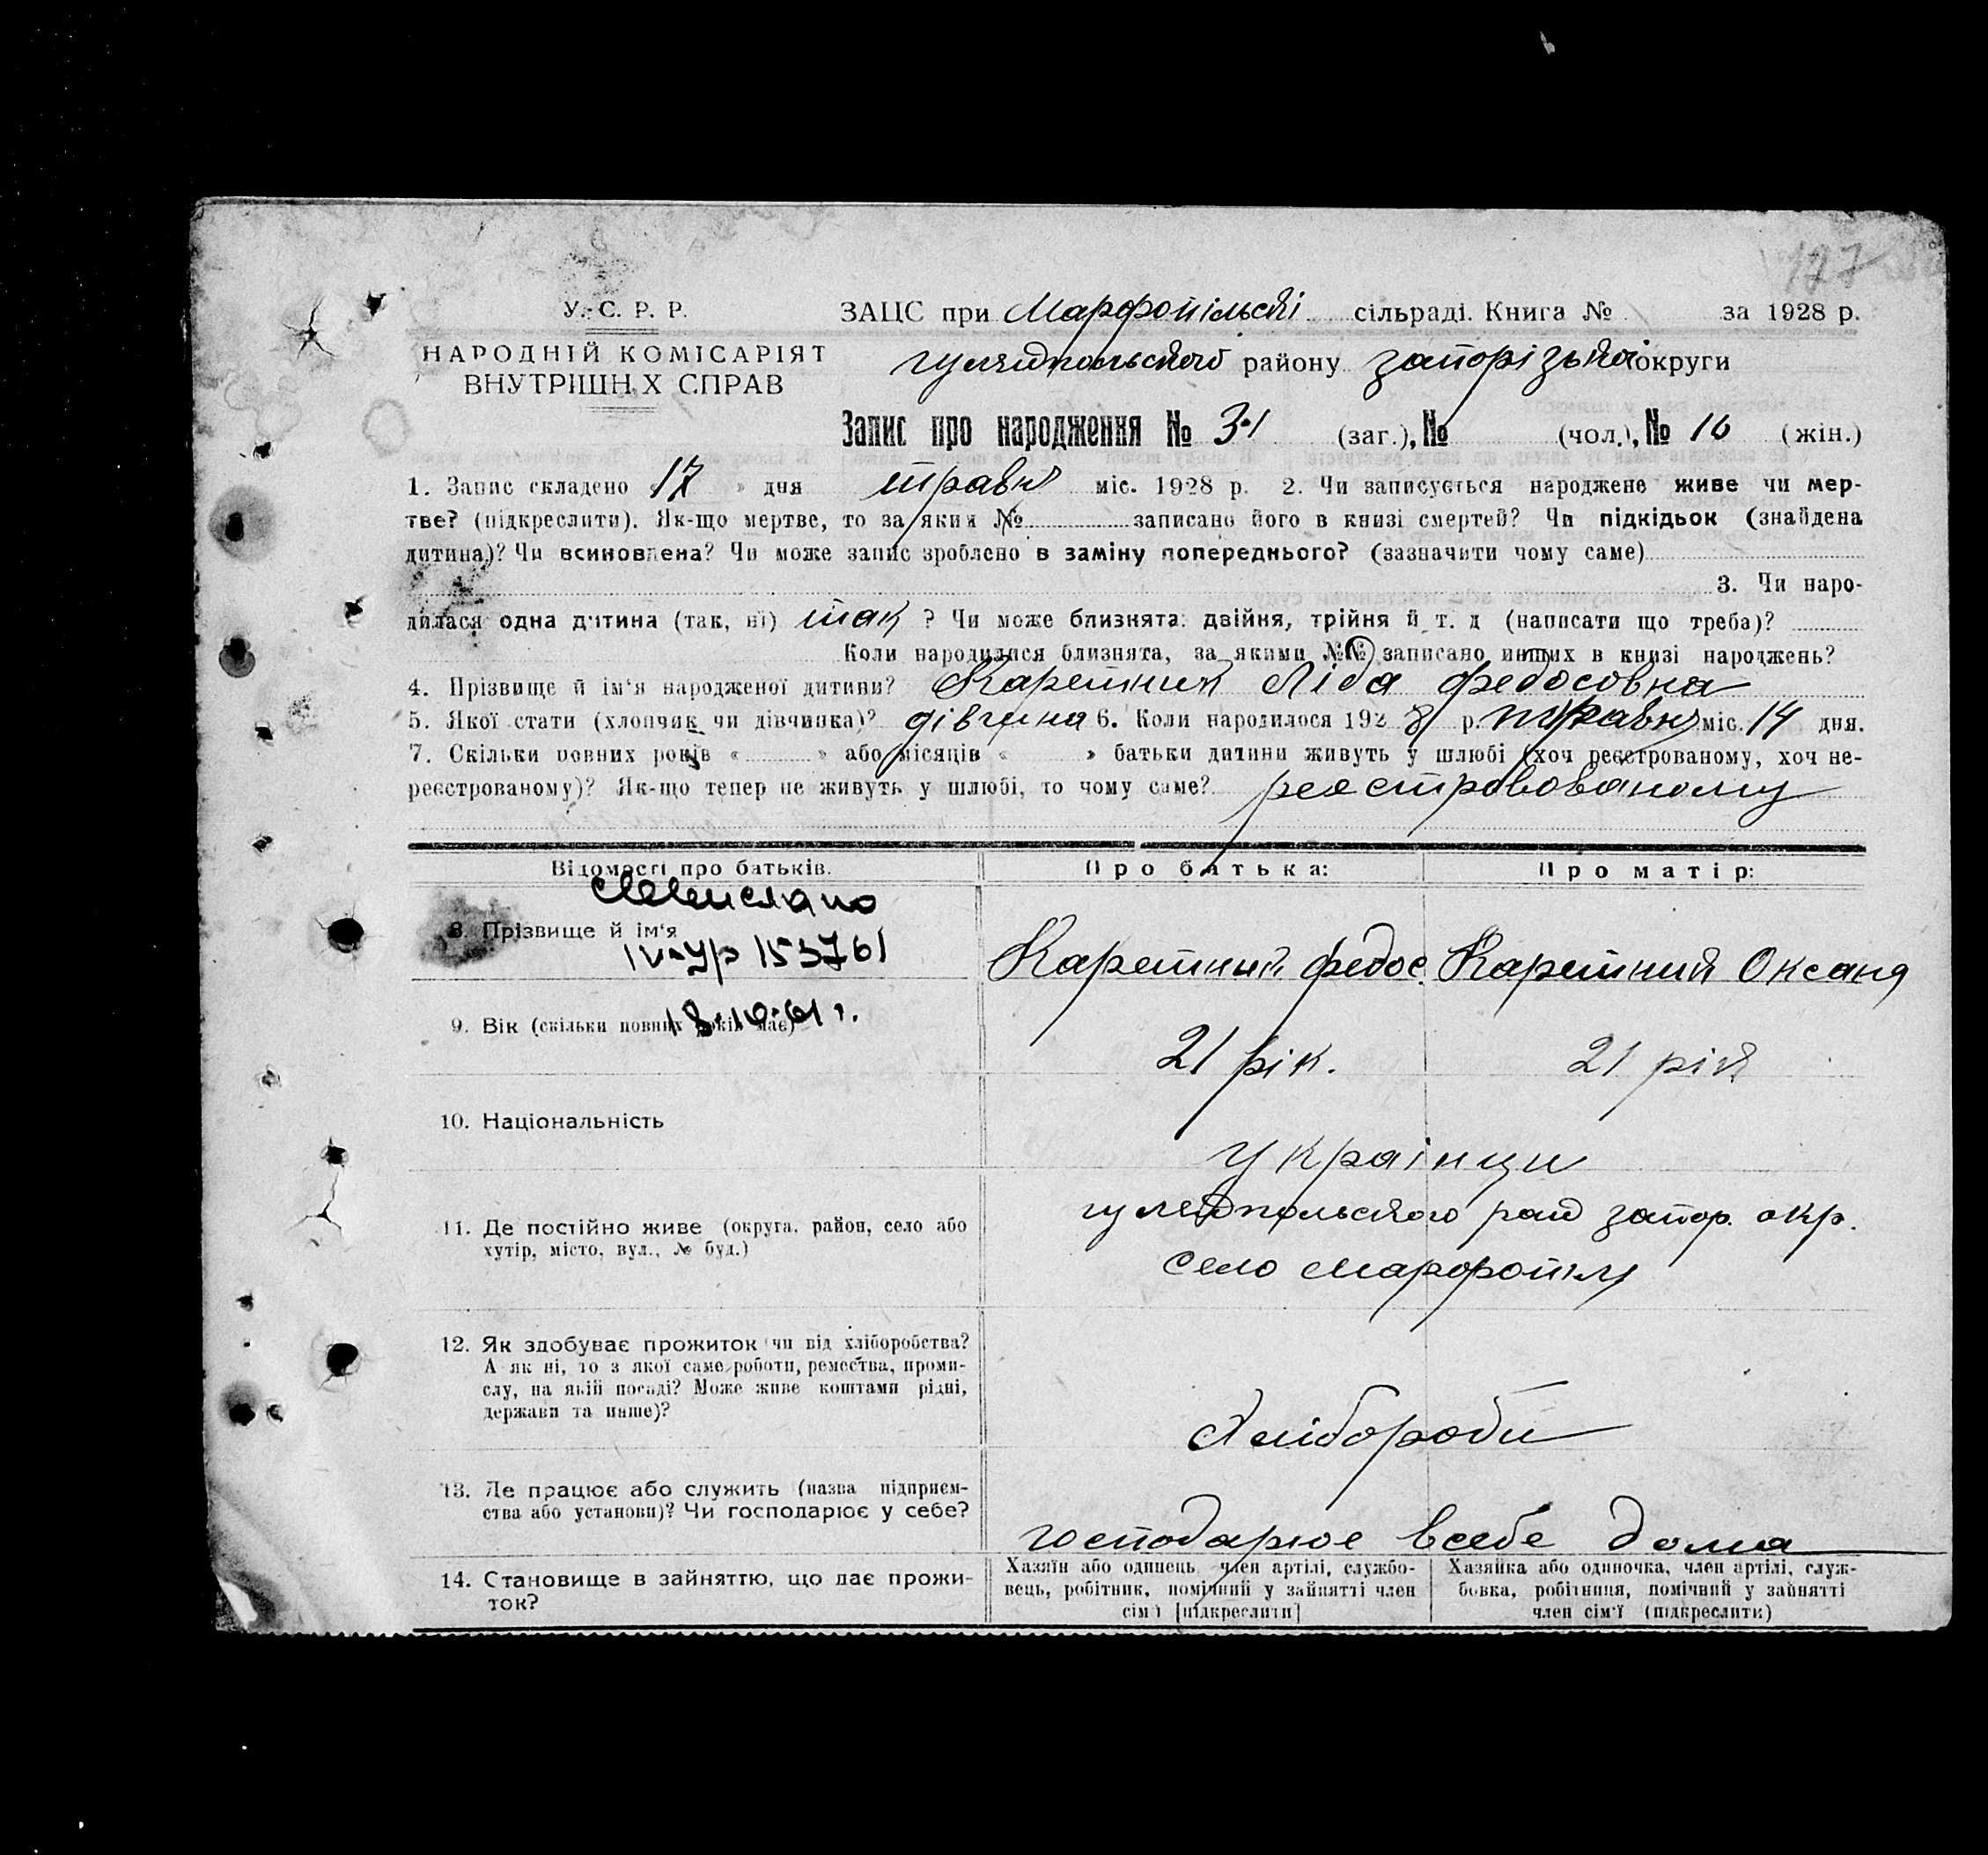 127
У. С. Р. Р.
НАРОДНІЙ КОМІСАРІЯТ
ВНУТРІШН Х СПРАВ
ЗАЦС при Марфопільскі сільраді. Книга № за 1928 р.
гуляйпольського району запорізької округи
Запис про народження № 31 (заг.), № (чол.), № 16 (жін.)
1. Запис складено « 17 » дня травня міс. 1928 р. 2. Чи записується народжене живе чи мер-
тве? (підкреслити). Як-що мертве, то за яким № записано його в книзі смертей? Чи підкідьок (знайдена
дитина)? Чи всиновлена? Чи може запис зроблено в заміну попереднього? (зазначити чому саме)
3. Чи наро-
дилася одна дитина (так, ні) так ? Чи може близнята: двійня, трійня й т. д (написати що треба)?
Коли народилися близнята, за якими №№ записано инших в книзі народжень?
4. Прізвище й ім'я народженої дитини? Каретний Ліда Федосовна
5. Якої стати (хлопчик чи дівчинка)? дівчина 6. Коли народилося 1928 р. травня міс. 14 дня.
7. Скільки повних років « » або місяців « » батьки дитини живуть у шлюбі (хоч реєстрованому, хоч не-
реєстрованому)? Як-що тепер не живуть у шлюбі, то чому саме? реєстровованому
Відомості про батьків. Про батька: Про матір:
8. Прізвище й ім'я Каретний Федос Каретний Оксана
153761
18.10.61 г.
9. Вік (скільки повних років має) 21 рік. 21 рік
10. Національність українци
11. Де постійно живе (округа, район, село або
хутір, місто, вул., № буд.)
гуляйпольского рай запор. окр.
село Марфопіль
12. Як здобуває прожиток чи від хліборобства?
А як ні, то з якої саме роботи, ремества, проми-
слу, на якій посаді? Може живе коштами рідні,
держави та инше)?
Хлібороби
13. Де працює або служить (назва підприєм-
ства або установи)? Чи господарює у себе?
господарює всебе дома
14. Становище в зайняттю, що дає прожи-
ток?
Хазяїн або одинець, член артілі, службо-
вець, робітник, помічний у зайнятті член
сім'ї [підкреслити]
Хазяйка або одиночка, член артілі, служ-
бовка, робітниця, помічний у зайнятті
член сім'ї (підкреслити)